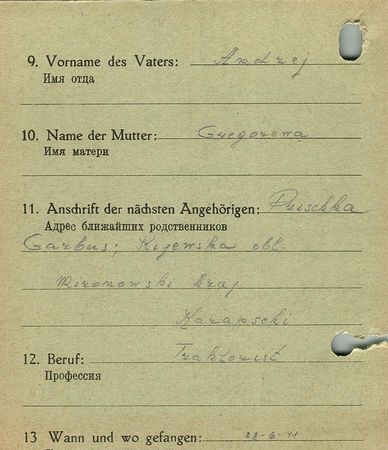 9. Vorname des Vaters: Andrej
Имя отца
10. Name der Mutter: Gregorewa
Имя матери
11. Anschrift der nächsten Angehörigen: Prischka
Адрес ближайших родственников
Garbus; Kijewska obl.
Mironowski kraj
Karapscki
12. Beruf: Traktorist
Профессия
13 Wann und wo gefangen: 28-6-41